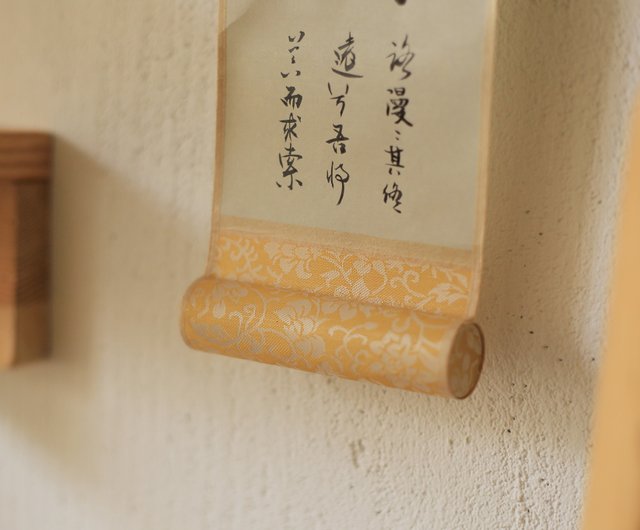 路漫〻其修
遠兮吾將
上下而求索